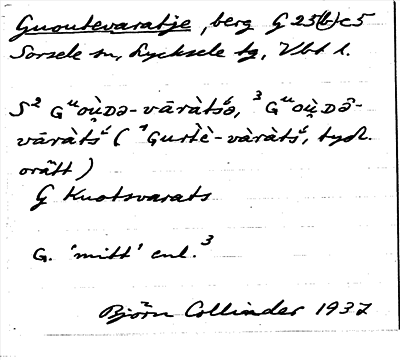 Guoutevaratje, berg G 25(b)c5
Sorsele sn, Lycksele tg, Vbt l.
S² Gᵘou̯ᴅə-vāràtsə, ³Gᵘoù̯ᴅə̂-
vāràtś (¹Gurtè-vàràtś, tydl.
orätt)
G Kuotsvarats
G. 'mitt' enl.³
Björn Collinder 1937